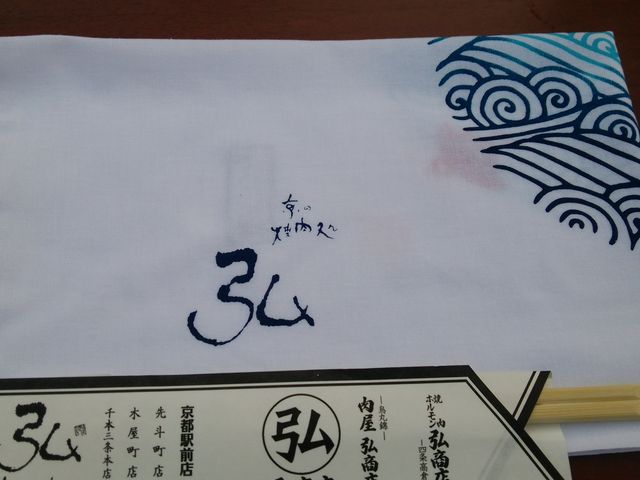 京の
焼肉処
弘
焼肉
ホルモン
弘商店
―四条高倉
―烏丸錦―
肉屋 弘商店
弘
京都駅前店
先斗町店
木屋町店
千本三条本店
弘